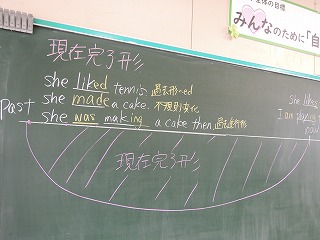 の目標
みんなのために「自
現在完了形
she liked tennis 過去形-ed
she made a cake. 不規則変化
Past she was making a cake then. 過去進行形
she likes
I am playing t
現在完了形